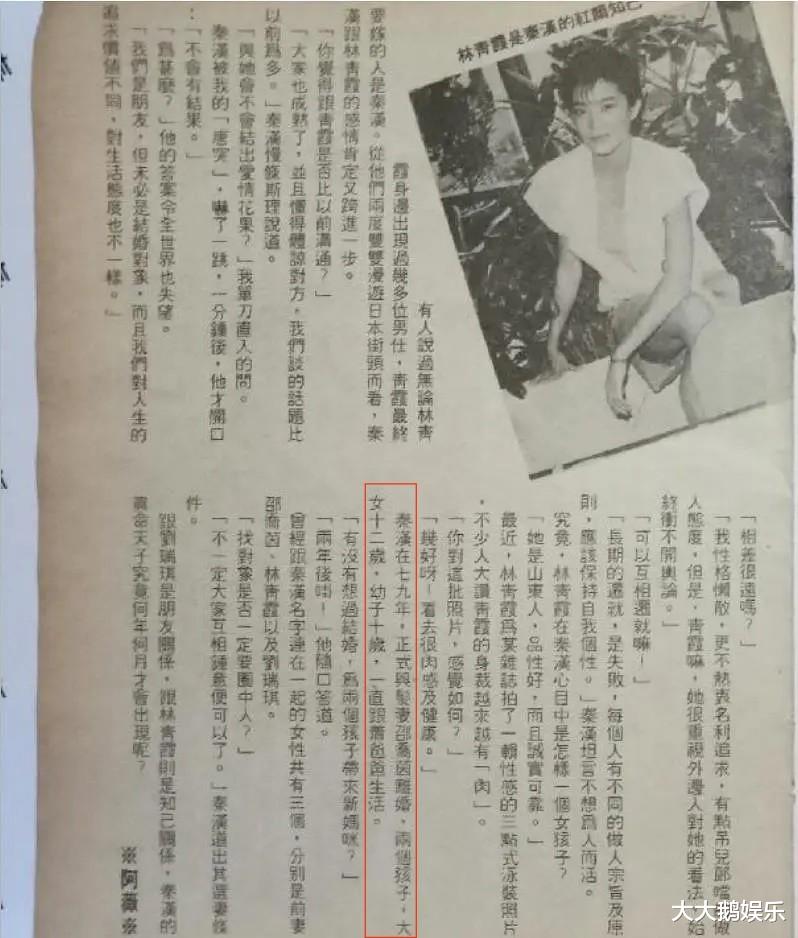 林青霞是秦漢的紅顏知己
有人說過無論林青
霞身邊出現過幾多位男仕，青霞最終
要嫁的人是秦漢。從他們兩度雙雙漫遊日本街頭而看，秦
漢跟林青霞的感情肯定又跨進一步。
「你覺得跟青霞是否比以前溝通？」
「大家也成熟了，並且懂得體諒對方，我們談的話題比
以前爲多。」秦漢慢條斯理說道。
「與她會不會結出愛情花果？」我單刀直入的問。
秦漢被我的「唐突」，嚇了一跳，一分鐘後，他才開口
：
「不會有結果。」
「爲甚麼？」他的答案令全世界也失望。
「我們是朋友，但未必是結婚對象，而且我們對人生的
追求價值不同，對生活態度也不一樣。」
「相差很遠嗎？」
「我性格懶散，更不熱衷名利追求，有點吊兒郎當的做
人態度，但是，青霞嘛，她很重視外邊人對她的看法，始
終衝不開輿論。」
「可以互相遷就嘛！」
「長期的遷就，是失敗，每個人有不同的做人宗旨及原
則，應該保持自我個性。」秦漢坦言不想爲人而活。
究竟，林青霞在秦漢心目中是怎樣一個女孩子？
「她是山東人，品性好，而且誠實可靠。」
最近，林青霞爲某雜誌拍了一輯性感的三點式泳裝照片
，不少人大讚青霞的身裁越來越有「肉」。
「你對這批照片，感覺如何？」
「幾好呀！看去很肉感及健康。」
秦漢在七九年，正式與髮妻邵喬茵離婚，兩個孩子，大
女十二歲，幼子十歲，一直跟蕭爸爸生活。
「有沒有想過結婚，爲兩個孩子帶來新媽咪？」
「兩年後啩！」他隨口答道。
曾經跟秦漢名字連在一起的女性共有三個，分別是前妻
邵喬茵、林青霞以及劉瑞琪。
「找對象是否一定要圈中人？」
「不一定大家互相鍾意便可以了。」秦漢道出其選妻條
件。
跟劉瑞琪是朋友關係，跟林青霞則是知己關係，秦漢的
眞命天子究竟何年何月才會出現呢？
※阿薇※
大大鹅娱乐